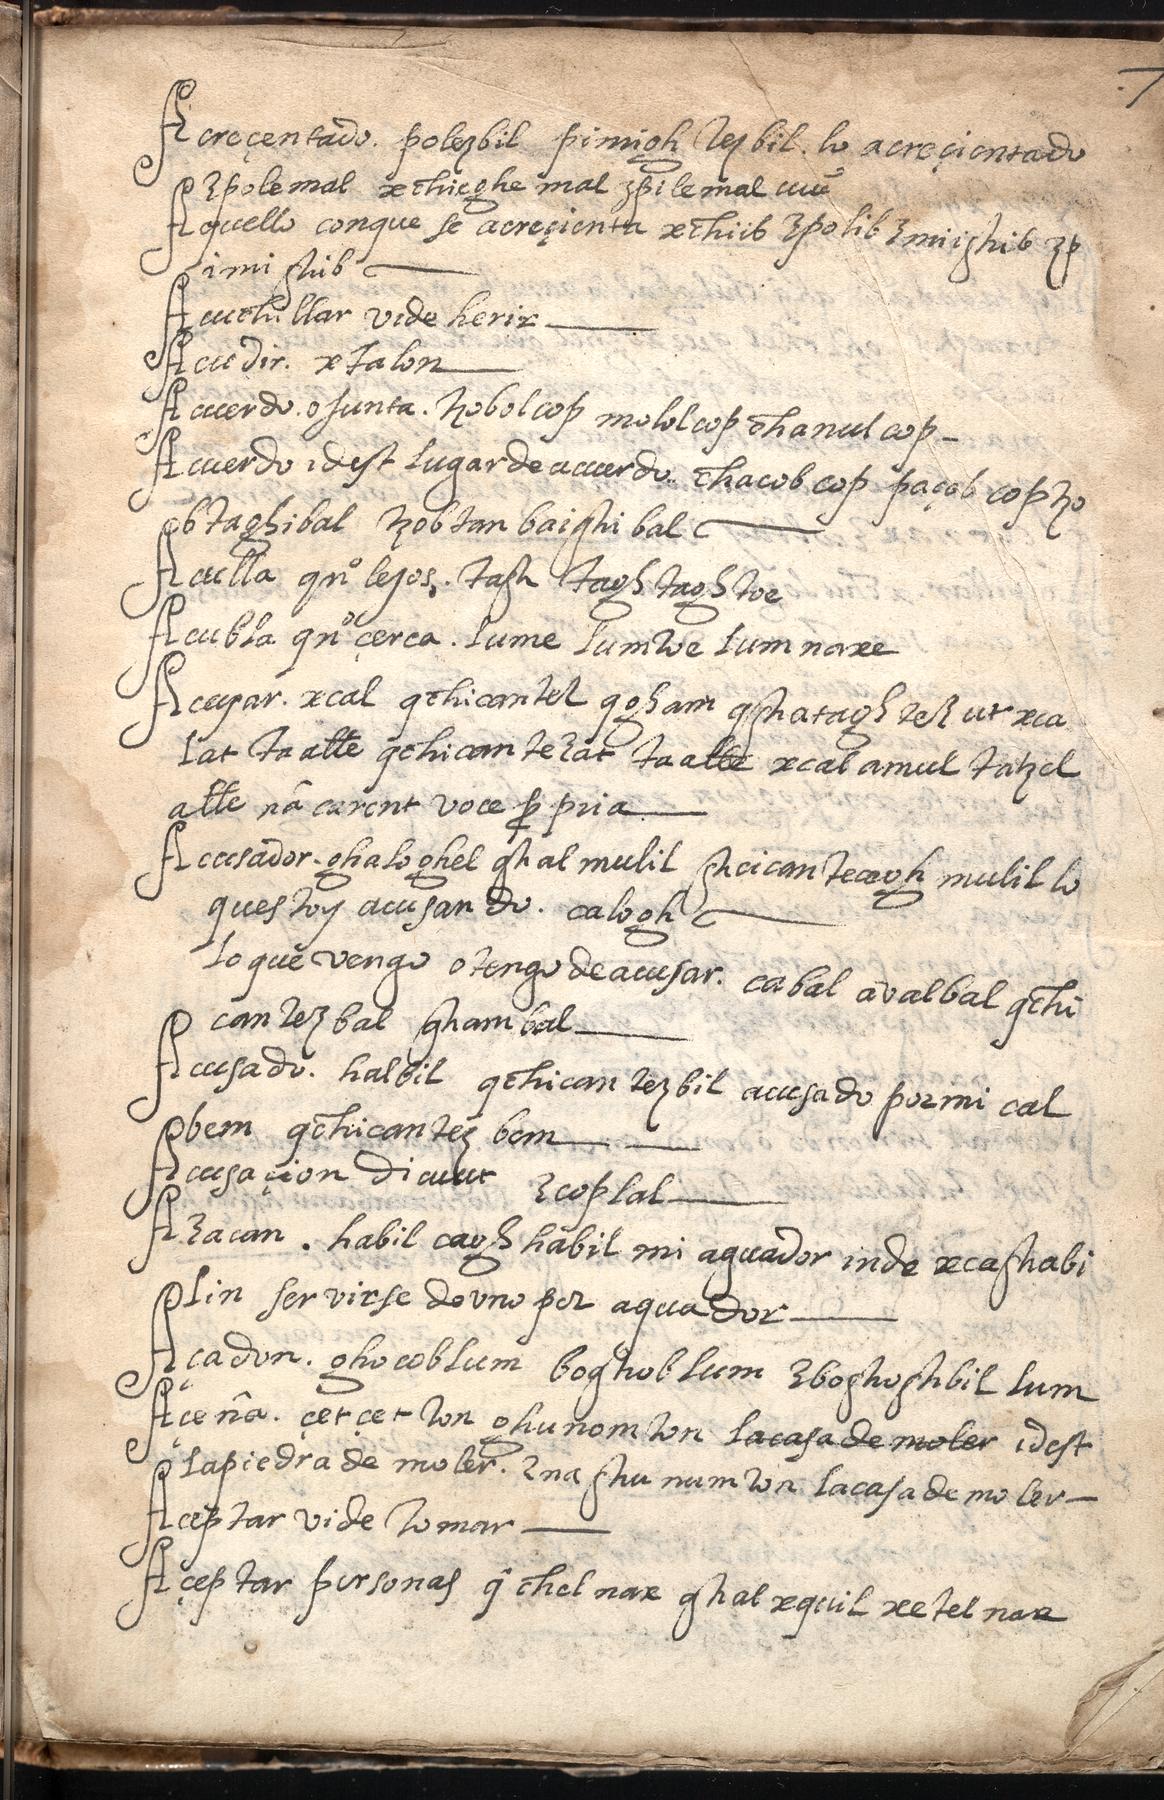 7
Acreçentado. polezbil pimigh lezbil. lo acreçientado
zpolemal xchieghe mal zpilemal
Aquello conque se acreçienta xchiib zpolib zmiighib zp
imighib
Acuchillar vide herir
Acudir. xtalon
Acuerdo. o junta. hobolcop mololcop chanulcop
Acuerdo idest lugar de acuerdo. chacob cop paçob cop ho
obtaghibal hobtanbaighibal
Aculla qnº lejos. tagh taghtaghtoe
Acubla qnº çerca. lume lumtoe lumnaxe
Acusar. xcal qchicantel qgham qghatagh tel ut xca
lat ta alte qchicantezat ta alte xcal amul tatzel
alte nâ carent voce p pria
Acusador. ghaloghel ghal mulil ghcicantecogh mulil lo
que stoy acusando. calogh
lo que vengo o tengo de acusar. cabal avalbal qchi
cantezbal ghambal
Acusado. halbil qchicantezbil acusado por mi cal
bem qchicantez bem
Acusaçion dicuut zcoplal
Azacan. habil cagh habil mi aguador inde xcaghabi
lin servirse de vno por aguador
Açadon. ghocoblum boghoblum zboghoghbil lum
Açeña. çetçet ton ghunom ton la casa de moler idest
la piedra de moler. zna ghunumton la casa de moler
Açeptar vide tomar
Açeptar personas q̂ chel nax ghal xquil xetel nax